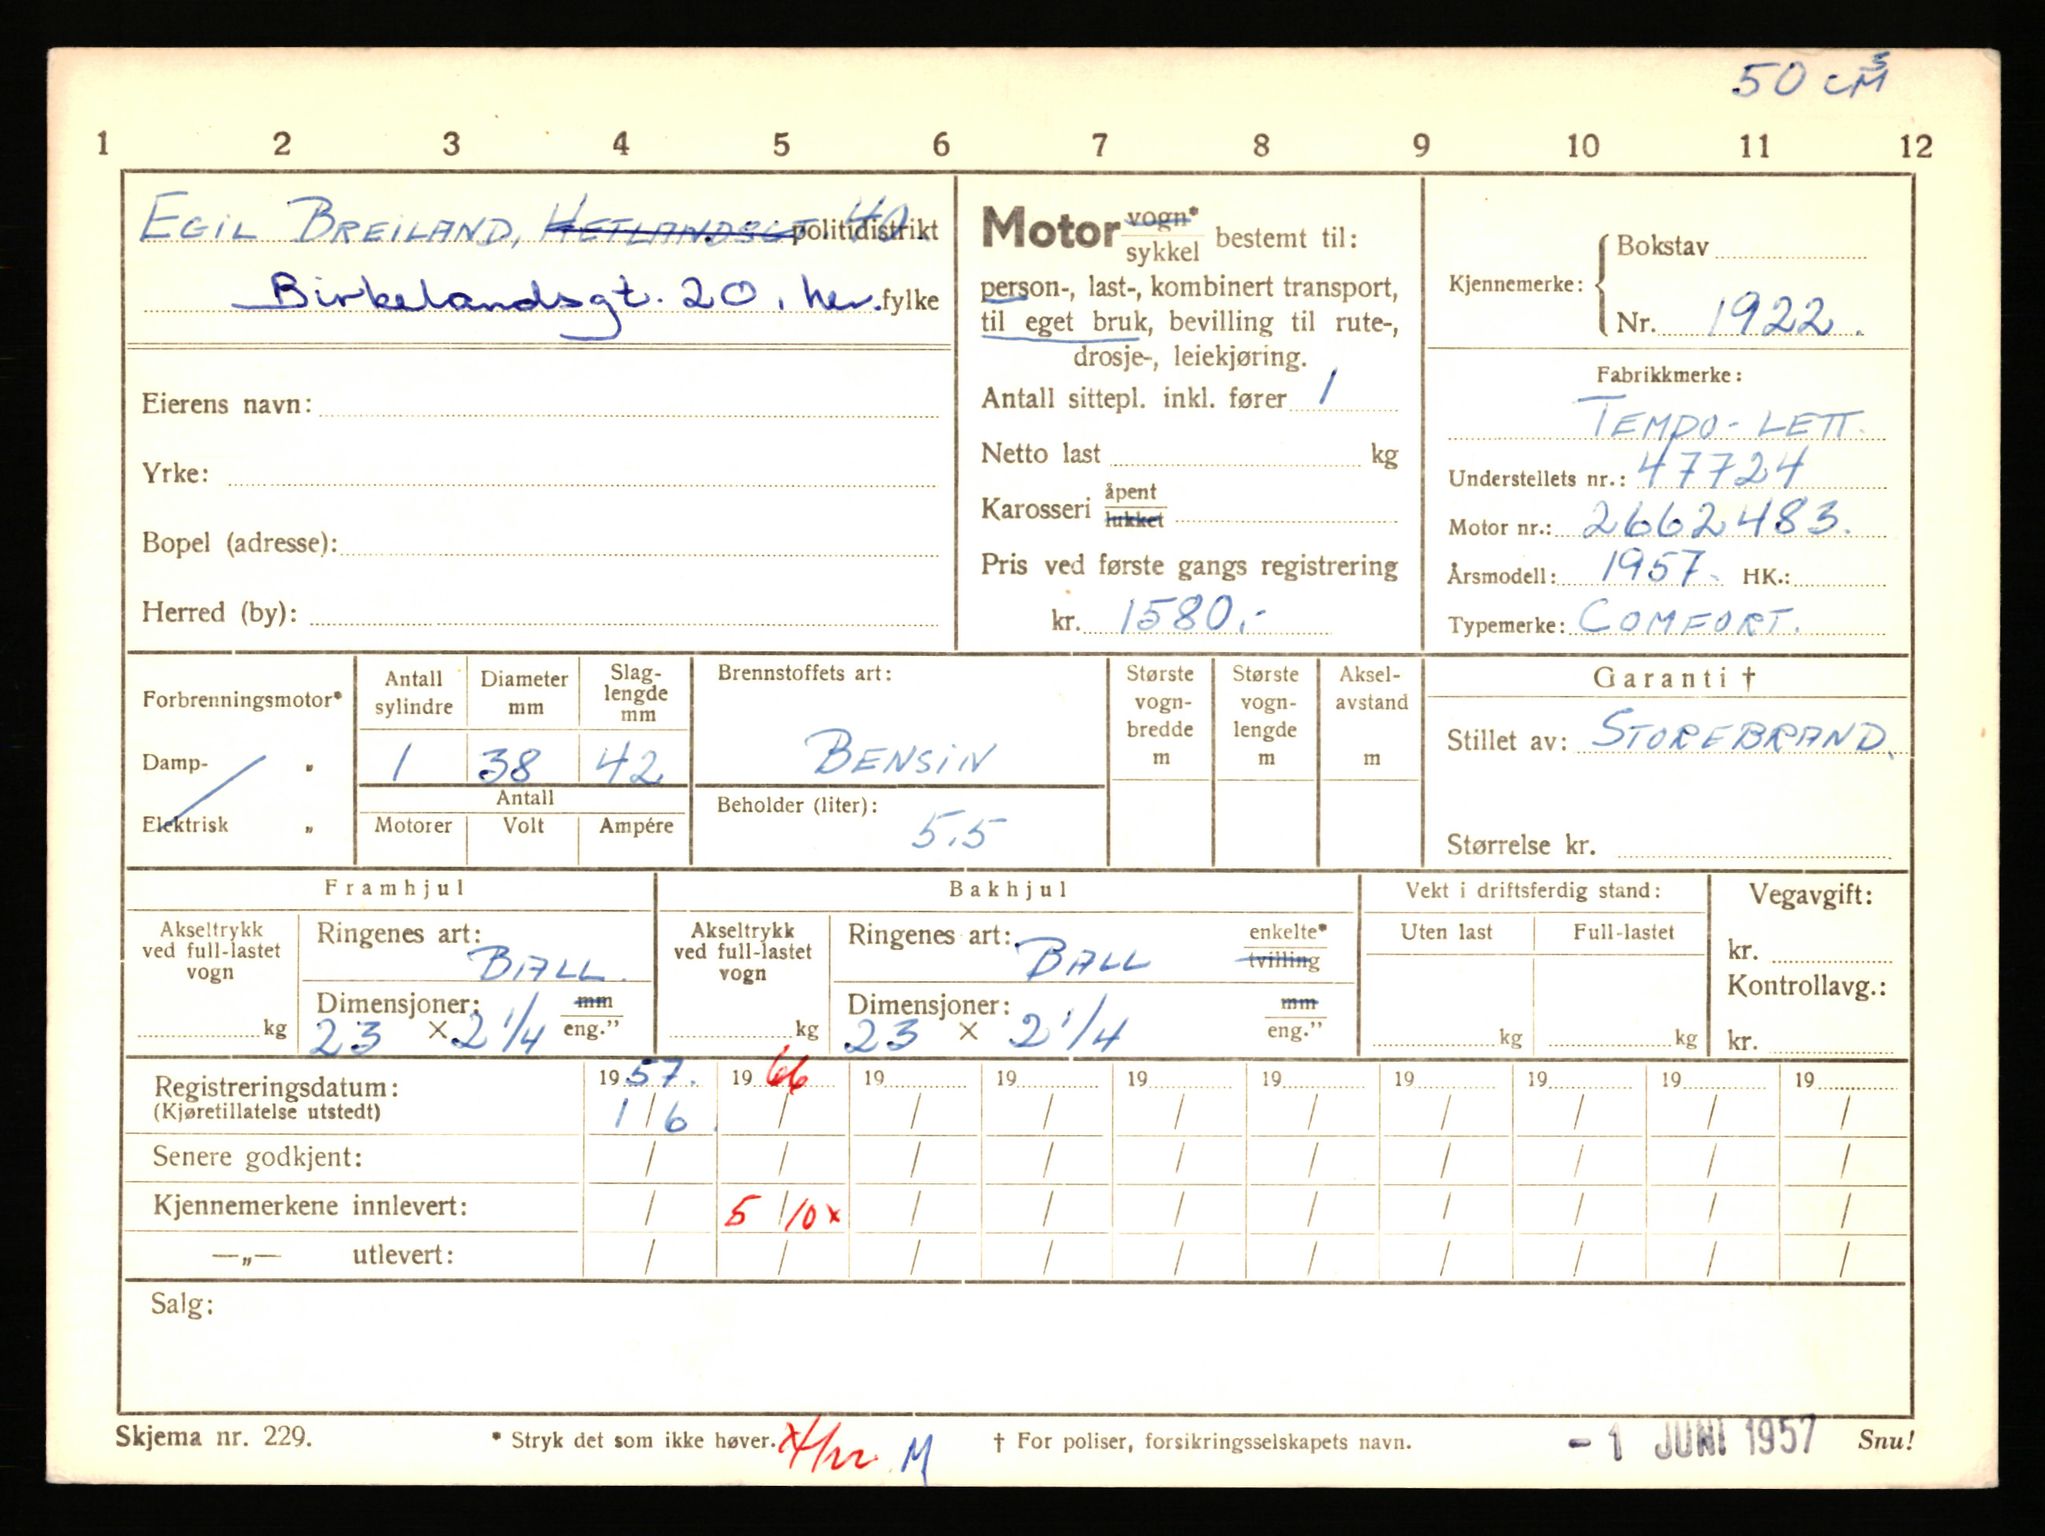 50 cm³
1 2 3 4 5 6 7 8 9 10 11 12
EGIL BREILAND, HETLANDSGT 40. politidistrikt
Birkelandsgt. 20, her. fylke
Eierens navn:
Yrke:
Bopel (adresse):
Herred (by):
Motor vogn* / sykkel bestemt til:
person-, last-, kombinert transport,
til eget bruk, bevilling til rute-,
drosje-, leiekjøring.
Antall sittepl. inkl. fører 1
Netto last kg
Karosseri åpent / lukket
Pris ved første gangs registrering
kr. 1580,-
Kjennemerke: Bokstav
Nr. 1922.
Fabrikkmerke:
TEMPO-LETT.
Understellets nr.: 47724
Motor nr.: 2662483.
Årsmodell: 1957. HK.:
Typemerke: COMFORT.
Forbrenningsmotor*
Damp- "
Elektrisk "
Antall sylindre
1
Diameter mm
38
Slag-lengde mm
42
Antall
Motorer Volt Ampére
Brennstoffets art:
BENSIN
Beholder (liter):
5,5
Største vogn-bredde m
Største vogn-lengde m
Aksel-avstand m
Garanti †
Stillet av: STOREBRAND.
Størrelse kr.
Framhjul
Akseltrykk ved full-lastet vogn
kg
Ringenes art:
BALL.
Dimensjoner: mm / eng."
23 × 2 1/4
Bakhjul
Akseltrykk ved full-lastet vogn
kg
Ringenes art: enkelte* / tvilling
BALL
Dimensjoner: mm / eng."
23 × 2 1/4
Vekt i driftsferdig stand:
Uten last Full-lastet
kg kg
Vegavgift:
kr.
Kontrollavg.:
kr.
Registreringsdatum: 1957. 1966 19 19 19 19 19 19 19 19
(Kjøretillatelse utstedt) 1/6. / / / / / / / / /
Senere godkjent: / / / / / / / / / /
Kjennemerkene innlevert: / 5/10 x / / / / / / / /
—„— utlevert: / / / / / / / / / /
Salg:
Skjema nr. 229. * Stryk det som ikke høver. M † For poliser, forsikringsselskapets navn. - 1 JUNI 1957 Snu!